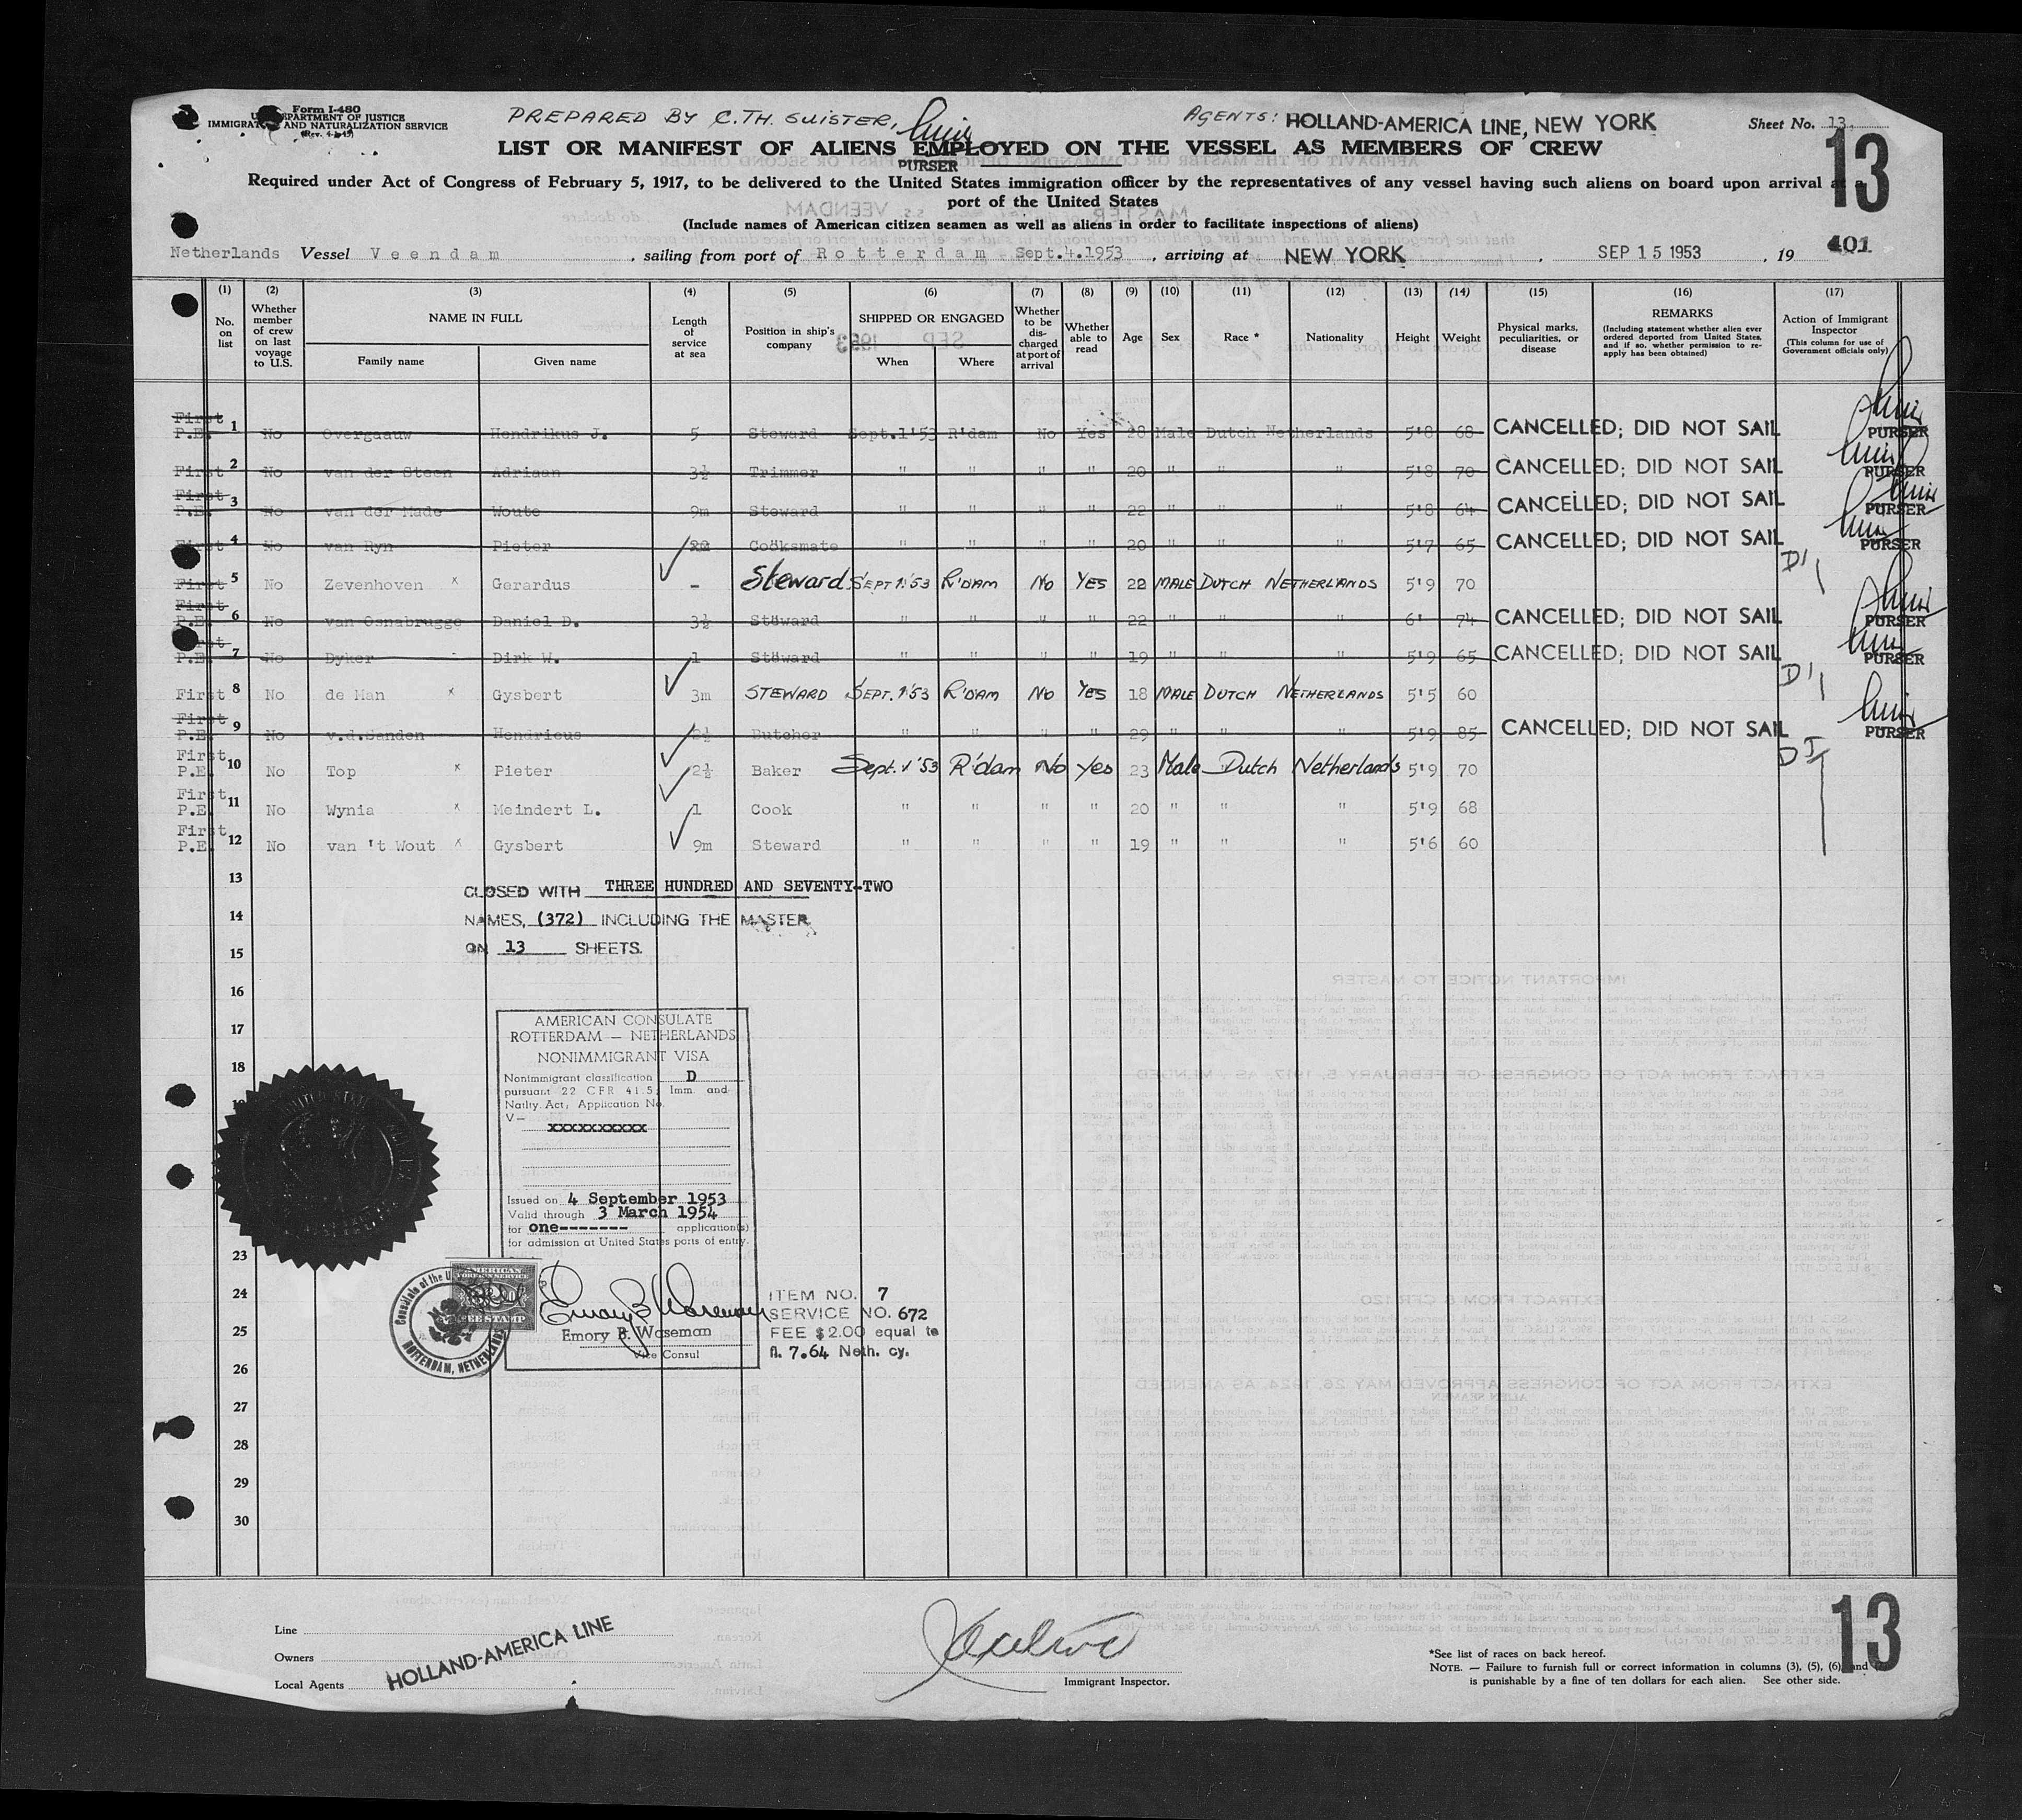 Form I-480
DEPARTMENT OF JUSTICE
IMMIGRATION AND NATURALIZATION SERVICE
(Rev. 4-1-45)
PREPARED BY C.TH. SUISTER,
PURSER
AGENTS: HOLLAND-AMERICA LINE, NEW YORK
Sheet No. 13.
13
LIST OR MANIFEST OF ALIENS EMPLOYED ON THE VESSEL AS MEMBERS OF CREW
Required under Act of Congress of February 5, 1917, to be delivered to the United States immigration officer by the representatives of any vessel having such aliens on board upon arrival at a
port of the United States
(Include names of American citizen seamen as well as aliens in order to facilitate inspections of aliens)
Netherlands Vessel Veendam , sailing from port of Rotterdam - Sept.4.1953 , arriving at NEW YORK , SEP 15 1953 , 19 401
(1) No. on list
(2) Whether member of crew on last voyage to U.S.
(3) NAME IN FULL Family name Given name
(4) Length of service at sea
(5) Position in ship's company
(6) SHIPPED OR ENGAGED When Where
(7) Whether to be discharged at port of arrival
(8) Whether able to read
(9) Age
(10) Sex
(11) Race *
(12) Nationality
(13) Height
(14) Weight
(15) Physical marks, peculiarities, or disease
(16) REMARKS (Including statement whether alien ever ordered deported from United States, and if so, whether permission to re-apply has been obtained)
(17) Action of Immigrant Inspector (This column for use of Government officials only)
First P.E. 1 No Overgaauw Hendrikus J. 5 Steward Sept.1'53 R'dam No Yes 28 Male Dutch Netherlands 5'8 68 CANCELLED; DID NOT SAIL PURSER
First 2 No van der Steen Adriaan 3½ Trimmer " " " " 20 " " " 5'8 70 CANCELLED; DID NOT SAIL PURSER
First P.E. 3 No van der Made Woute 9m Steward " " " " 22 " " " 5'8 64 CANCELLED; DID NOT SAIL PURSER
First 4 No van Ryn Pieter Cooksmate " " " " 20 " " " 5'7 65 CANCELLED; DID NOT SAIL PURSER
First 5 No Zevenhoven x Gerardus - Steward SEPT 1'53 R'DAM No YES 22 MALE DUTCH NETHERLANDS 5'9 70 D1
First P.E. 6 No van Osnabrugge Daniel D. 3½ Steward " " " " 22 " " " 6' 74 CANCELLED; DID NOT SAIL PURSER
First P.E. 7 No Dyker Dirk W. 1 Steward " " " " 19 " " " 5'9 65 CANCELLED; DID NOT SAIL PURSER
First 8 No de Man x Gysbert 3m STEWARD SEPT.1'53 R'DAM No YES 18 MALE DUTCH NETHERLANDS 5'5 60 D1
First P.E. 9 No v.d.Sanden Hendricus 2½ Butcher " " " " 29 " " " 5'9 85 CANCELLED; DID NOT SAIL PURSER
First P.E. 10 No Top x Pieter 2½ Baker Sept. 1'53 R'dam No Yes 23 Male Dutch Netherlands 5'9 70 D1
First P.E. 11 No Wynia x Meindert L. 1 Cook " " " " 20 " " " 5'9 68
First P.E. 12 No van 't Wout x Gysbert 9m Steward " " " " 19 " " " 5'6 60
13
CLOSED WITH THREE HUNDRED AND SEVENTY-TWO
14
NAMES, (372) INCLUDING THE MASTER
ON 13 SHEETS.
15
16
17
18
AMERICAN CONSULATE
ROTTERDAM — NETHERLANDS
NONIMMIGRANT VISA
Nonimmigrant classification D
pursuant 22 CFR 41.5; Imm. and
Natlty. Act; Application No.
V— XXXXXXXXXX
Issued on 4 September 1953
Valid through 3 March 1954
for one------- application(s)
for admission at United States ports of entry.
23
24
25
26
27
28
29
30
AMERICAN
FOREIGN SERVICE
FEE STAMP
Consulate of the U
ROTTERDAM, NETHERLANDS
Emory B. Waseman
Emory B. Waseman
Vice Consul
ITEM NO. 7
SERVICE NO. 672
FEE $2.00 equal to
fl. 7.64 Neth. cy.
Line
Owners
Local Agents
HOLLAND-AMERICA LINE
Immigrant Inspector.
*See list of races on back hereof.
NOTE. — Failure to furnish full or correct information in columns (3), (5), (6), and
is punishable by a fine of ten dollars for each alien. See other side.
13